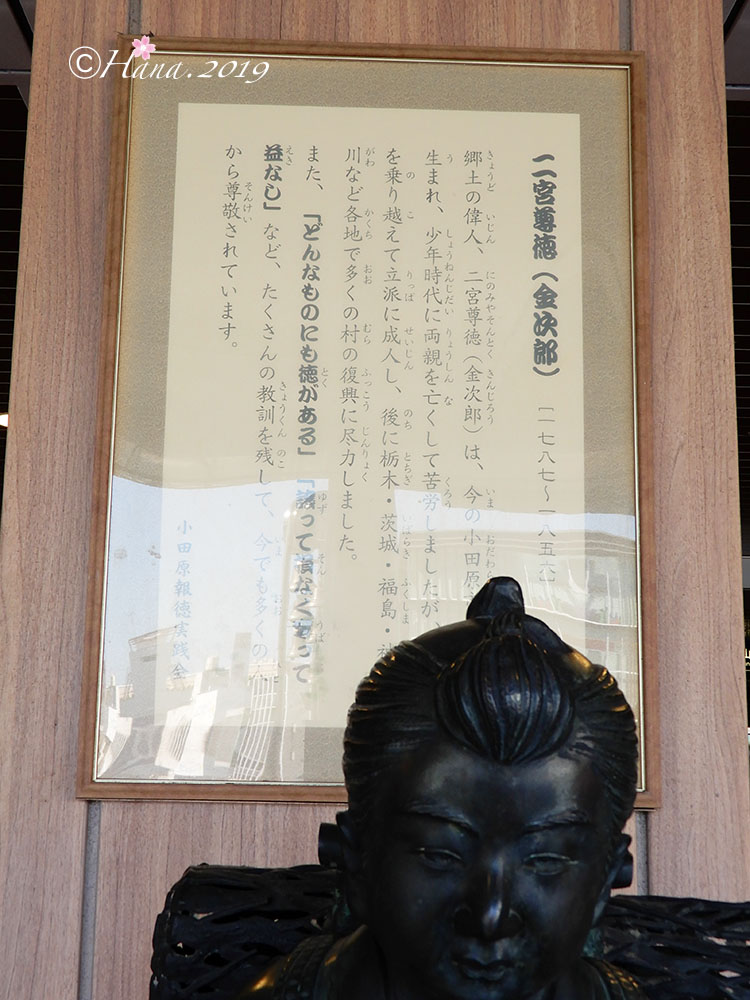 ©Hana.2019
二宮尊徳（金次郎） ［一七八七～一八五六］
郷土の偉人、二宮尊徳（金次郎）は、今の小田原
生まれ、少年時代に両親を亡くして苦労しましたが、
を乗り越えて立派に成人し、後に栃木・茨城・福島・神
川など各地で多くの村の復興に尽力しました。
また、「どんなものにも徳がある」「譲って損なく奪って
益なし」など、たくさんの教訓を残して、今でも多くの
から尊敬されています。
小田原報徳実践会